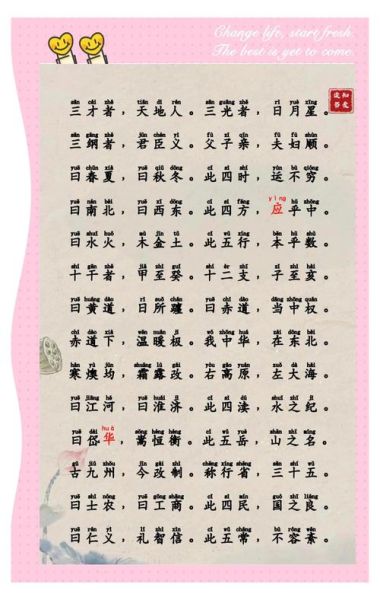 Change life, start fresh
The best is yet to come.
sān cái zhě tiān dì rén sān guāng zhě rì yuè xīng
三才者，天地人。三光者，日月星。
sān gāng zhě jūn chén yì fù zǐ qīn fū fù shùn
三纲者，君臣义。父子亲，夫妇顺。
yuē chūn xià yuē qiū dōng cǐ sì shí yùn bù qióng
曰春夏，曰秋冬。此四时，运不穷。
yuē nán běi yuē xī dōng cǐ sì fāng yìng hū zhōng
曰南北，曰西东。此四方，应乎中。
yuē shuǐ huǒ mù jīn tǔ cǐ wǔ xíng běn hū shù
曰水火，木金土。此五行，本乎数。
shí gān zhě jiǎ zhì guǐ shí èr zhī zǐ zhì hài
十干者，甲至癸。十二支，子至亥。
yuē huáng dào rì suǒ chán yuē chì dào dāng zhōng quán
曰黄道，日所躔。曰赤道，当中权。
chì dào xià wēn nuǎn jí wǒ zhōng huá zài dōng běi
赤道下，温暖极。我中华，在东北。
hán yù jūn shuāng lù gǎi yòu gāo yuán zuǒ dà hǎi
寒燠均，霜露改。右高原，左大海。
yuē jiāng hé yuē huái jǐ cǐ sì dú shuǐ zhī jì
曰江河，曰淮济。此四渎，水之纪。
yuē dài huà sōng héng héng cǐ wǔ yuè shān zhī míng
曰岱华，嵩恒衡。此五岳，山之名。
gǔ jiǔ zhōu jīn gǎi zhì chēng xíng shěng sān shí wǔ
古九州，今改制。称行省，三十五。
yuē shì nóng yuē gōng shāng cǐ sì mín guó zhī liáng
曰士农，曰工商。此四民，国之良。
yuē rén yì lǐ zhì xìn cǐ wǔ cháng bù róng wěn
曰仁义，礼智信。此五常，不容紊。